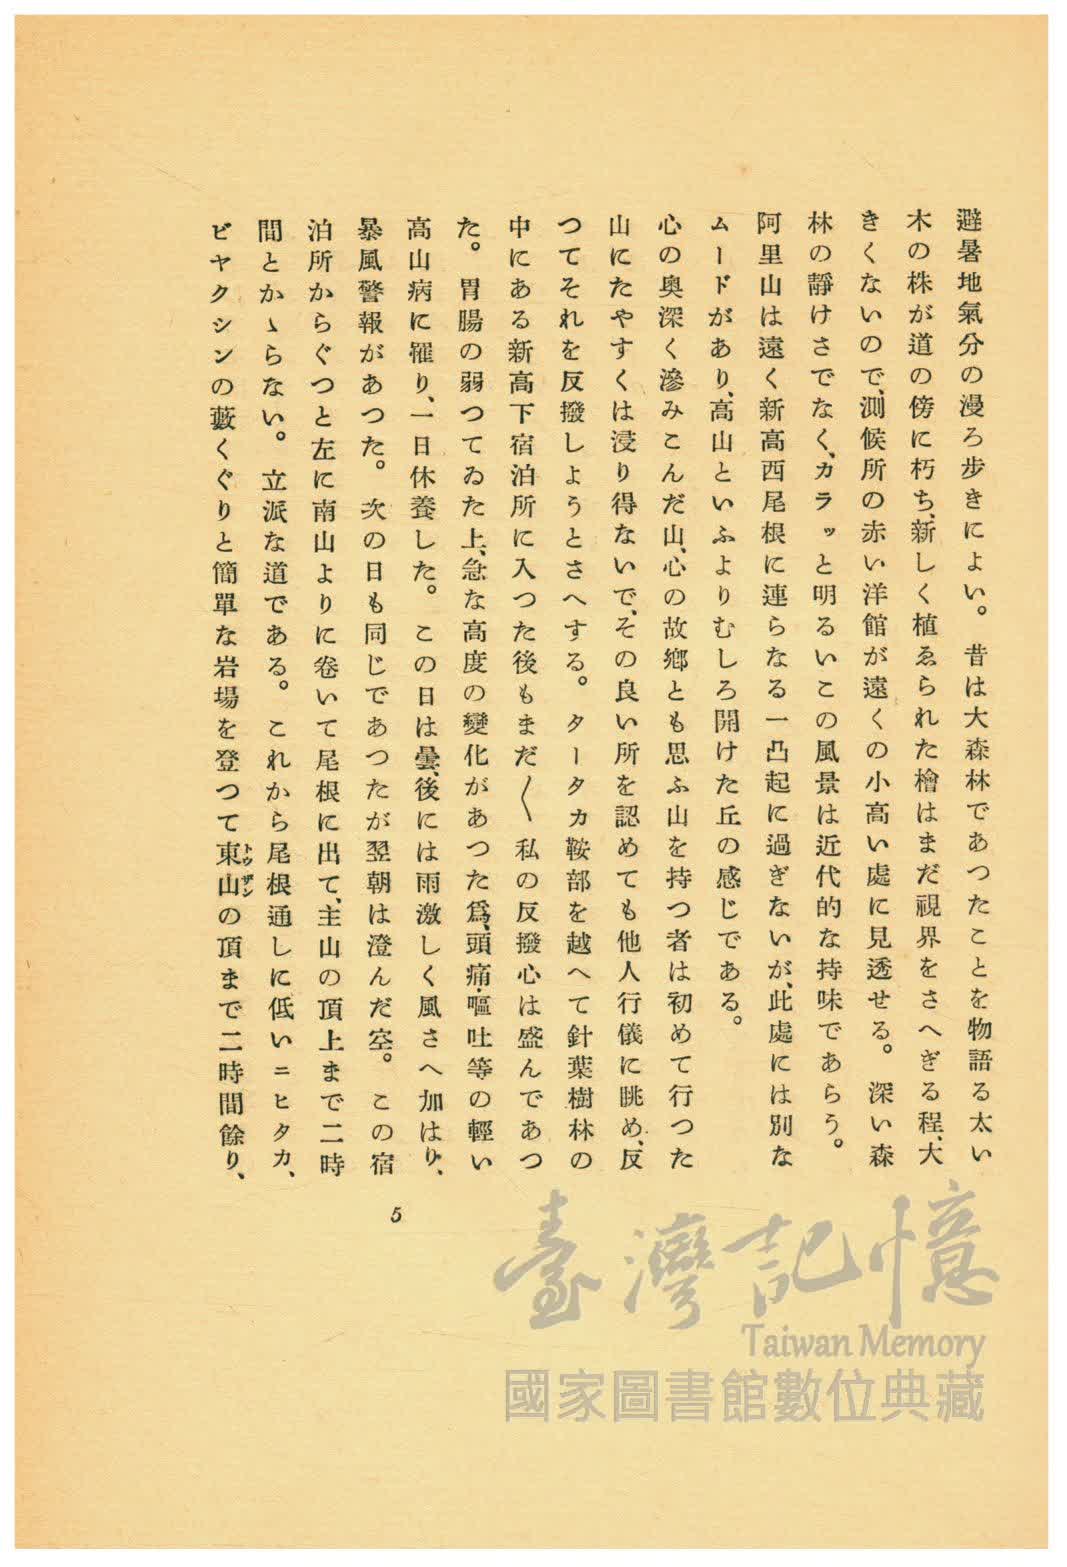 避暑地氣分の漫ろ步きによい。昔は大森林であつたことを物語る太い
木の株が道の傍に朽ち、新しく植ゑられた檜はまだ視界をさへぎる程、大
きくないので、測候所の赤い洋館が遠くの小高い處に見透せる。深い森
林の靜けさでなく、カラッと明るいこの風景は近代的な持味であらう。
阿里山は遠く新高西尾根に連らなる一凸起に過ぎないが、此處には別な
ムードがあり、高山といふよりむしろ開けた丘の感じである。
心の奥深く滲みこんだ山、心の故鄕とも思ふ山を持つ者は初めて行つた
山にたやすくは浸り得ないで、その良い所を認めても他人行儀に眺め、反
つてそれを反撥しようとさへする。タータカ鞍部を越へて針葉樹林の
中にある新高下宿泊所に入つた後もまだ〱私の反撥心は盛んであつ
た。胃腸の弱つてゐた上、急な高度の變化があつた爲、頭痛・嘔吐等の輕い
高山病に罹り、一日休養した。この日は曇、後には雨激しく風さへ加はり、
暴風警報があつた。次の日も同じであつたが翌朝は澄んだ空。この宿
泊所からぐつと左に南山よりに卷いて尾根に出て、主山の頂上まで二時
間とかゝらない。立派な道である。これから尾根通しに低いニヒタカ、
ビヤクシンの藪くぐりと簡單な岩場を登つて東山トウザンの頂まで二時間餘り、
5
臺灣記憶
Taiwan Memory
國家圖書館數位典藏